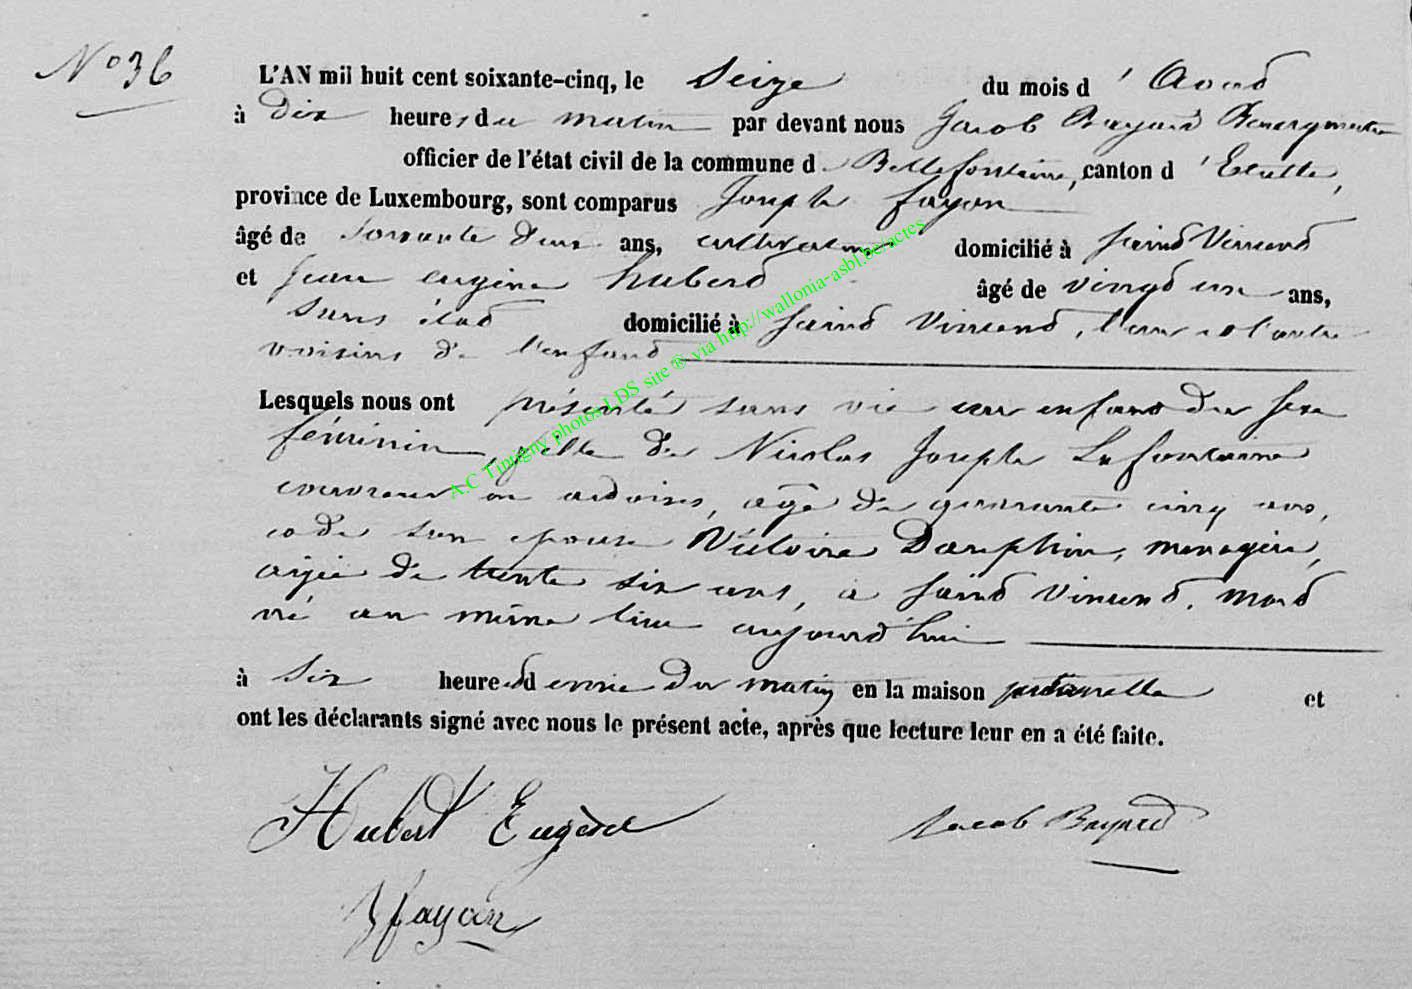 N° 36
L'AN mil huit cent soixante-cinq, le Seize du mois d'Aout
à Dix heures du matin par devant nous Jacob Bayard Bourgmestre
officier de l'état civil de la commune d Bellefontaine, canton d'Etalle,
province de Luxembourg, sont comparus Joseph fayon
âgé de soixante deux ans, cultivateur domicilié à saint Vincent
et jean eugène hubert âgé de vingt un ans,
sans état domicilié à saint Vincent, l'un et l'autre
voisins de l'enfant
Lesquels nous ont présenté sans vie un enfant du sexe
féminin, fille de Nicolas Joseph Lafontaine
couvreur en ardoises, agé de quarante cinq ans,
et de son epouse Victoire Dauphin, menagère,
agée de trente six ans, a saint Vincent, mort
né au même lieu aujourd'hui
à Six heures d du matin en la maison paternelle et
ont les déclarants signé avec nous le présent acte, après que lecture leur en a été faite.
Hubert Eugène Jacob Bayard
J fayon
A.C Tintigny photos LDS site ® via http://wallonia-asbl.be/actes